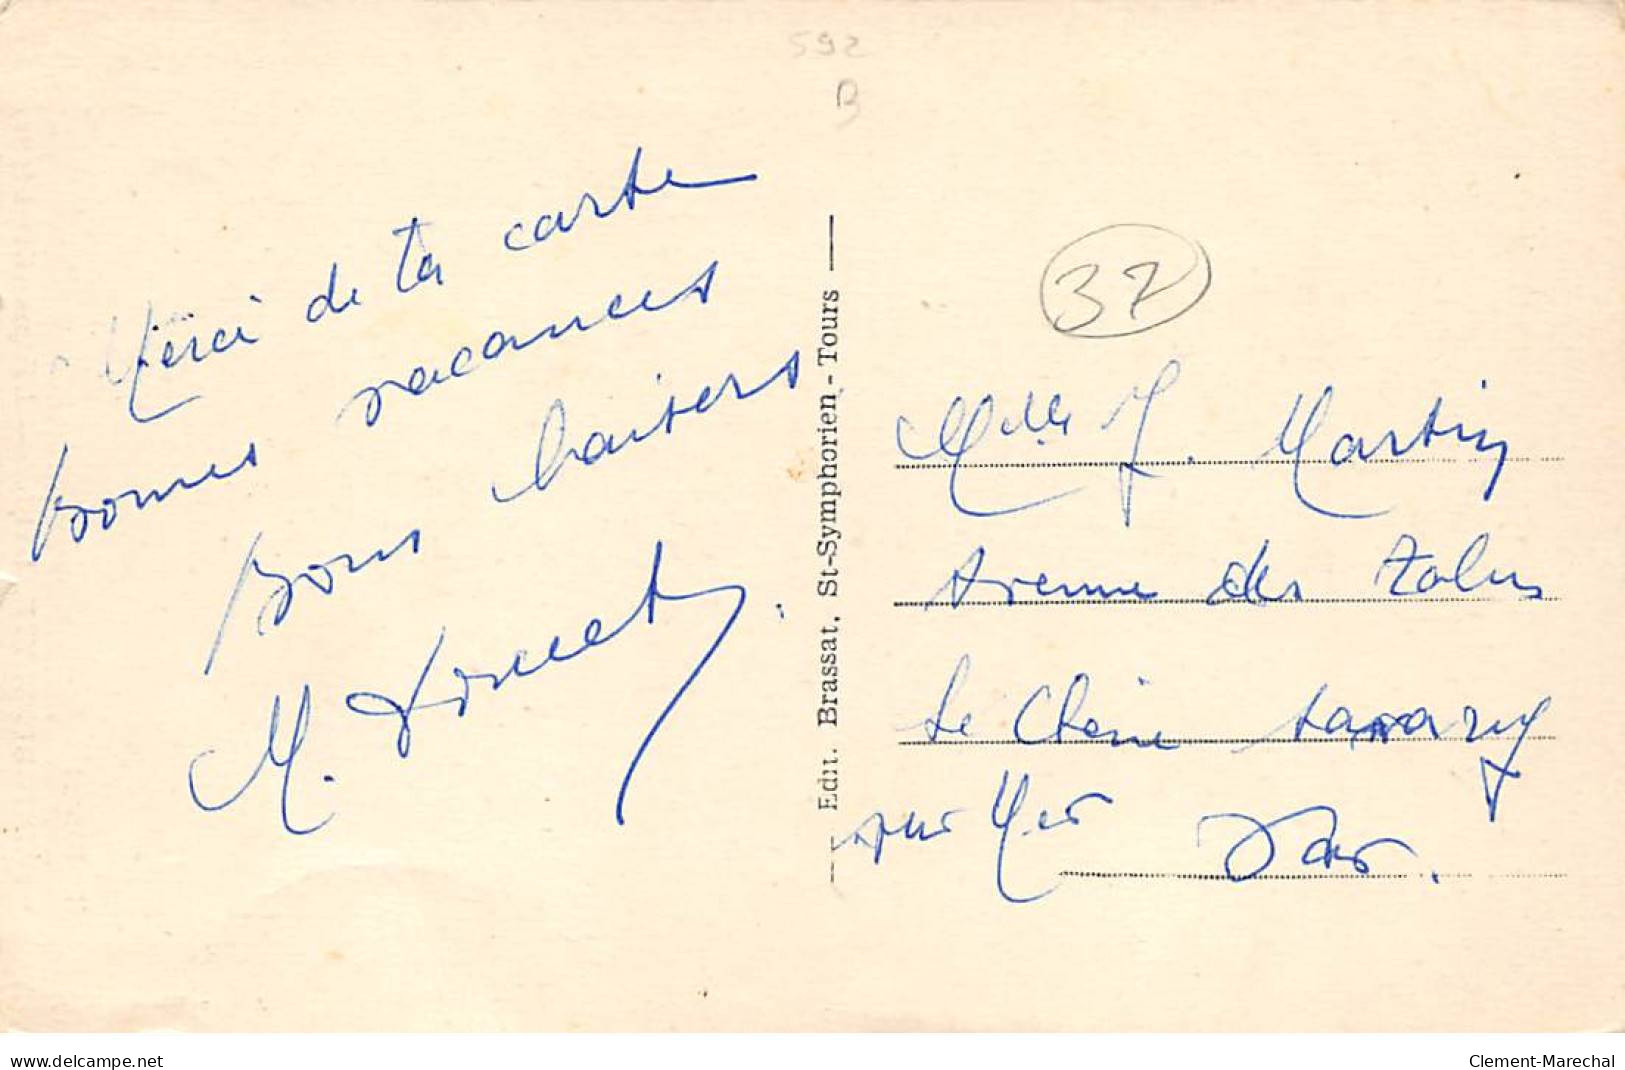 592
B
Merci de ta carte
bonnes vacances
Bons baisers
M.
Edit. Brassat, St-Symphorien,-Tours
37
Mlle J. Martin
Avenue des
Le Chêne Tamarzy
sur Mer Var.
www.delcampe.net
Clement-Marechal